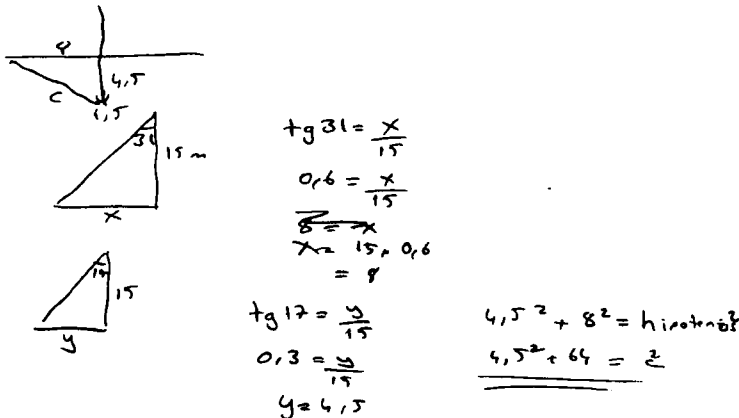 8
4,5
c
1,5
31
15 m
x
tg 31 = x/15
0,6 = x/15
x = 15 . 0,6
= 8
15
y
tg 17 = y/15
0,3 = y/15
y = 4,5
4,5² + 8² = hipotenüs²
4,5² + 64 = c²